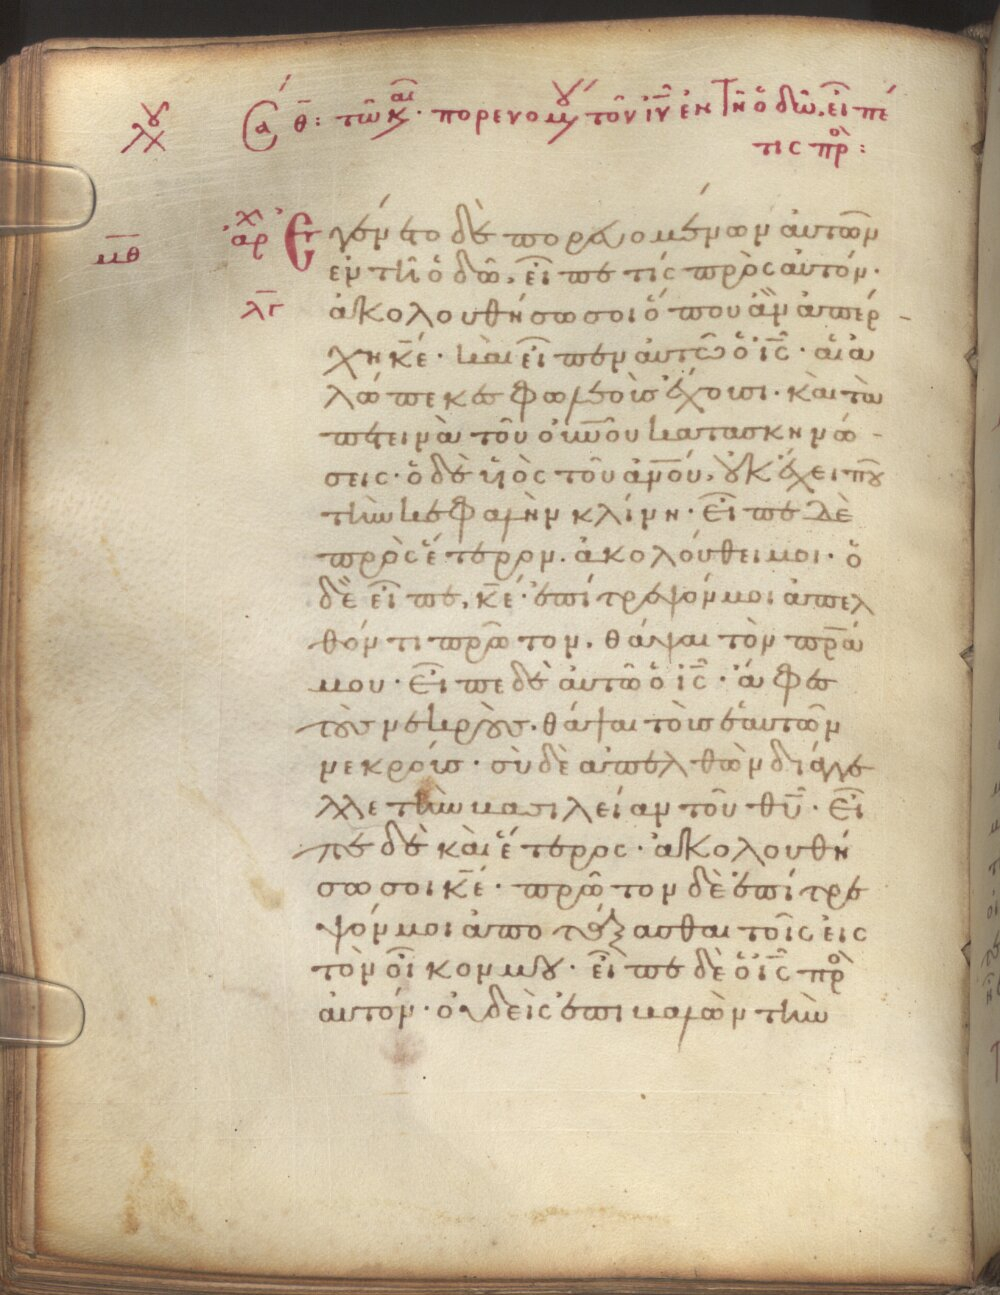 Σα θ: τῶ και. πορευομου τὸν ιν εν τη ὁδῶ, εἶπέ
τις πρ:
αρχ Εγένετο δὲ πορευομένων αὐτῶν
μθ
ἐν τῆ ὁδῶ, εἶπε τίς πρὸς αὐτόν·
λγ ἀκολουθήσω σοι ὅπου ἂν ἀπέρ-
χη κε̄· καὶ εἶπεν αὐτῶ ὁ ις̄· αἱ ἀ
λώπεκες φωλεοὺς ἔχουσι· καὶ τὰ
πετεινὰ τοῦ οὐνοῦ κατασκηνώ-
σεις· ὁ δὲ υἱὸς τοῦ ἀνου, οὐκ ἔχει ποῦ
τὴν κεφαλὴν κλίνη· Εἶπε δὲ
πρὸς ἕτερον· ἀκολούθει μοι· ὁ
δὲ εἶπε, κε̄· ἐπίτρεψόν μοι ἀπελ
θόντι πρῶτον, θάψαι τὸν πρα
μου· Εἶπε δὲ αὐτῶ ὁ ις̄· ἄφες
τοὺς νεκροὺς, θάψαι τοὺς ἑαυτῶν
νεκρούς· σὺ δὲ ἀπελθὼν διάγγε
λλε τὴν βασιλείαν τοῦ θῡ· Εἶ
πε δὲ καὶ ἕτερος· ἀκολουθή
σω σοι κε̄· πρῶτον δὲ ἐπίτρε
ψόν μοι ἀποτάξασθαι τοῖς εἰς
τὸν οἶκον μου· εἶπε δὲ ὁ ις̄ πρ
αὐτόν· οὐδεὶς ἐπιβαλὼν τὴν